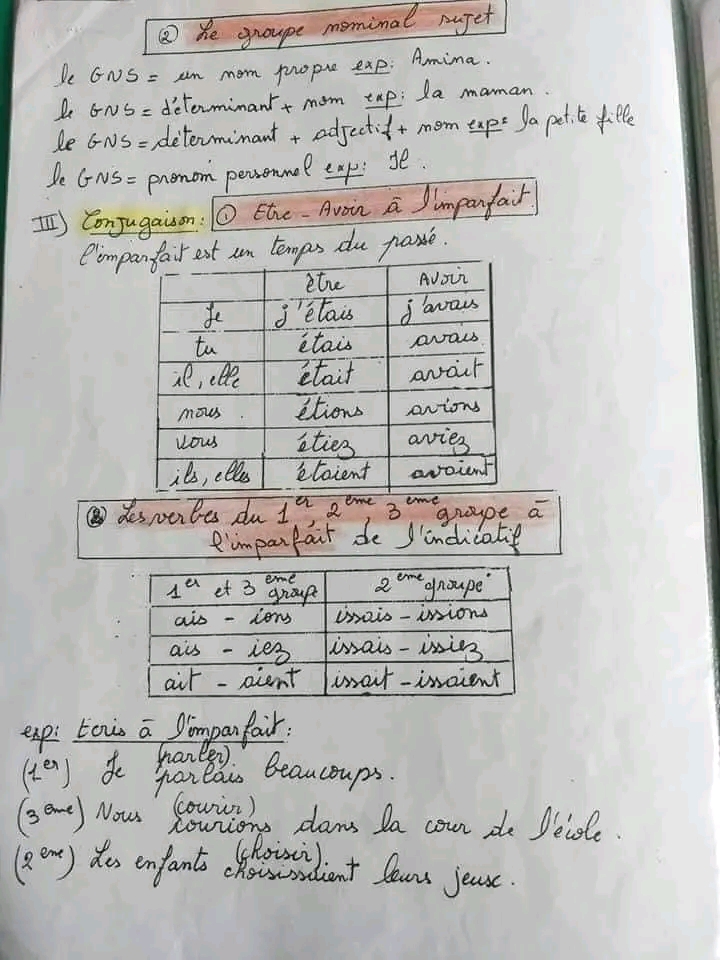 ② Le groupe nominal sujet
le GNS = un nom propre exp: Amina.
le GNS = déterminant + nom exp: la maman.
le GNS = déterminant + adjectif + nom exp: la petite fille
le GNS = pronom personnel exp: Il.
III) Conjugaison: ① Etre - Avoir à l'imparfait.
l'imparfait est un temps du passé.
être Avoir
Je j'étais j'avais
tu étais avais
il, elle était avait
nous étions avions
vous étiez aviez
ils, elles étaient avaient
② Les verbes du 1er, 2ème, 3ème groupe à
l'imparfait de l'indicatif
1er et 3ème groupe 2ème groupe
ais - ions issais - issions
ais - iez issais - issiez
ait - aient issait - issaient
exp: Ecris à l'imparfait:
(parler)
(1er) Je parlais beaucoups.
(courir)
(3ème) Nous courions dans la cour de l'école.
(choisir)
(2ème) Les enfants choisissaient leurs jeux.